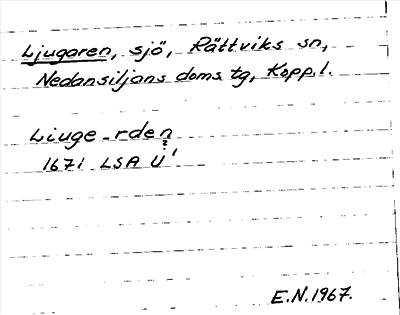 Ljugaren, sjö, Rättviks sn,
Nedansiljans doms. tg, Kopp. l.
Liuge-rden
?
1671 LSA U'
E.N. 1967.